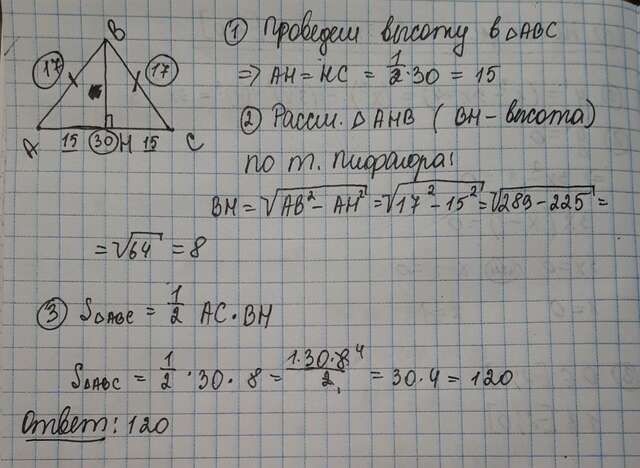 B
① Проведем высоту в △ABC
17 17
⇒ AH = HC = 1/2 · 30 = 15
② Рассм. △AHB (BH – высота)
A 15 30 H 15 C
по т. Пифагора:
BH = √AB² – AH² = √17² – 15² = √289 – 225 =
= √64 = 8
③ S△ABC = 1/2 AC · BH
S△ABC = 1/2 · 30 · 8 = 1·30·8⁴/2₁ = 30·4 = 120
Ответ: 120